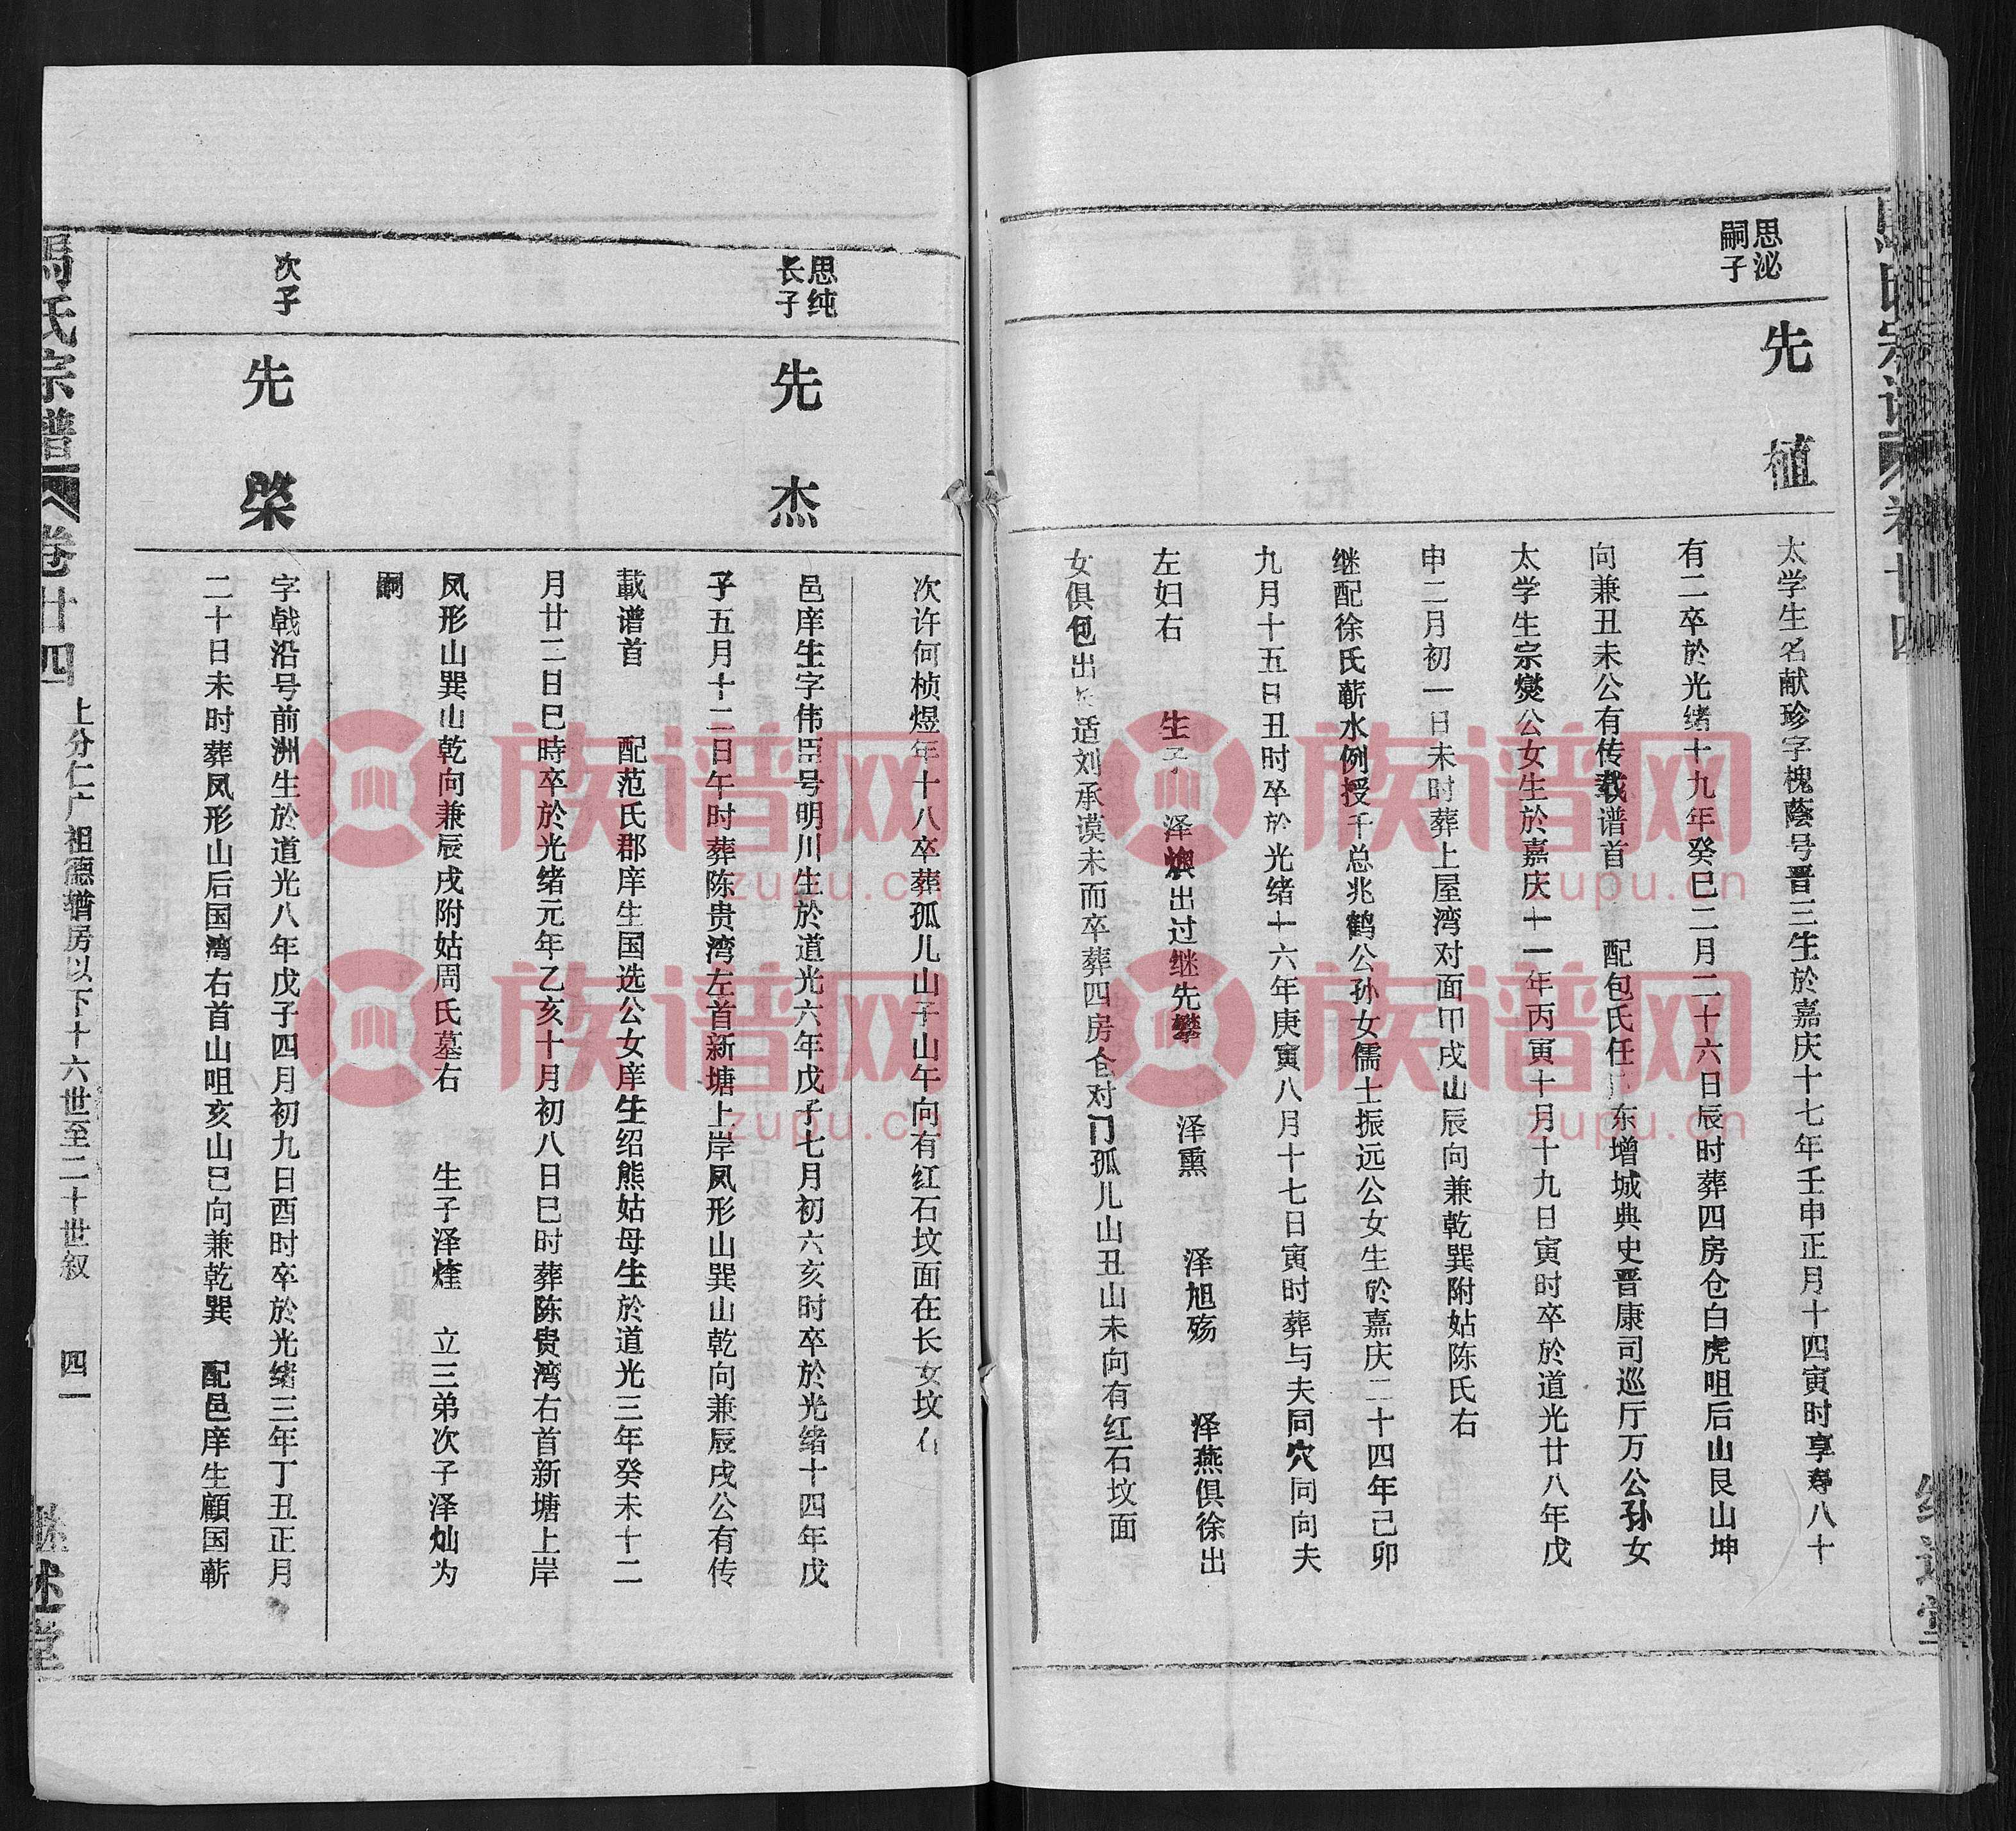 思泌
嗣子
先植
太学生名献珍字槐蔭号晋三生於嘉庆十七年壬申正月十四寅时享寿八十
有二卒於光绪十九年癸巳二月二十六日辰时葬四房仓白虎咀后山艮山坤
向兼丑未公有传载谱首 配包氏任 东增城典史晋康司巡厅万公孙女
太学生宗燮公女生於嘉庆十一年丙寅十月十九日寅时卒於道光廿八年戊
申二月初一日未时葬上屋湾对面甲戌山辰向兼乾巽附姑陈氏右
继配徐氏蕲水例授千总兆鹤公孙女儒士振远公女生於嘉庆二十四年己卯
九月十五日丑时卒於光绪十六年庚寅八月十七日寅时葬与夫同穴同向夫
左妇右 生子 泽㷰出过继先攀 泽熏 泽旭殇 泽燕俱徐出
女俱包出长适刘承谟未而卒葬四房仓对门孤儿山丑山未向有红石坟面
次许何桢煜年十八卒葬孤儿山子山午向有红石坟面在长女坟右
思纯
长子
先杰
邑庠生字伟臣号明川生於道光六年戊子七月初六亥时卒於光绪十四年戊
子五月十二日午时葬陈贵湾左首新塘上岸凤形山巽山乾向兼辰戌公有传
載谱首 配范氏郡庠生国选公女庠生绍熊姑母生於道光三年癸未十二
月廿二日巳時卒於光绪元年乙亥十月初八日巳时葬陈贵湾右首新塘上岸
凤形山巽山乾向兼辰戌附姑周氏墓右 生子泽煃 立三弟次子泽灿为
嗣
次子
先棨
字戟沿号前洲生於道光八年戊子四月初九日酉时卒於光绪三年丁丑正月
二十日未时葬凤形山后国湾右首山咀亥山巳向兼乾巽 配邑庠生顧国蕲
馮氏宗譜
卷廿四
上分仁广祖德辀房以下十六世至二十世叙
四一
继述堂
族谱网
zupu.cn
族谱网
zupu.cn
族谱网
zupu.cn
族谱网
zupu.cn